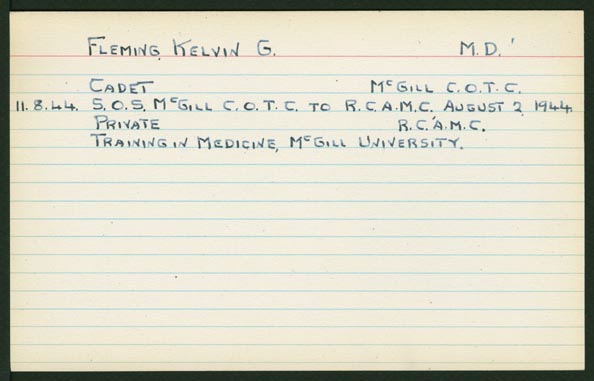 FLEMING, KELVIN G. M.D.
CADET McGILL C.O.T.C.
11.8.44. S.O.S. McGILL C.O.T.C. TO R.C.A.M.C. AUGUST 2, 1944.
PRIVATE R.C.A.M.C.
TRAINING IN MEDICINE, McGILL UNIVERSITY.